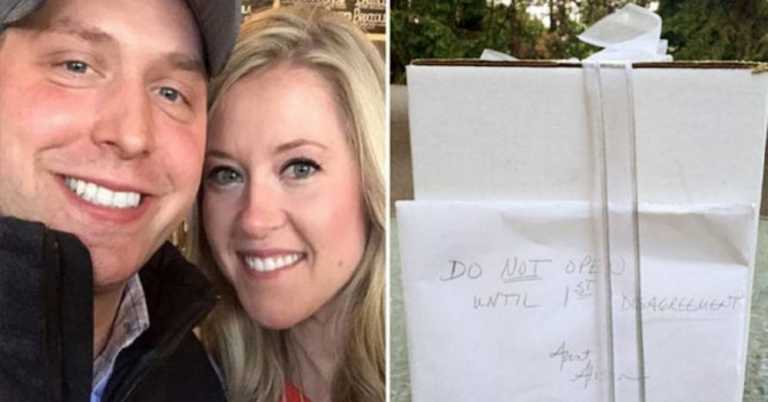 DO NOT OPEN
UNTIL 1ST DISAGREEMENT
Aunt